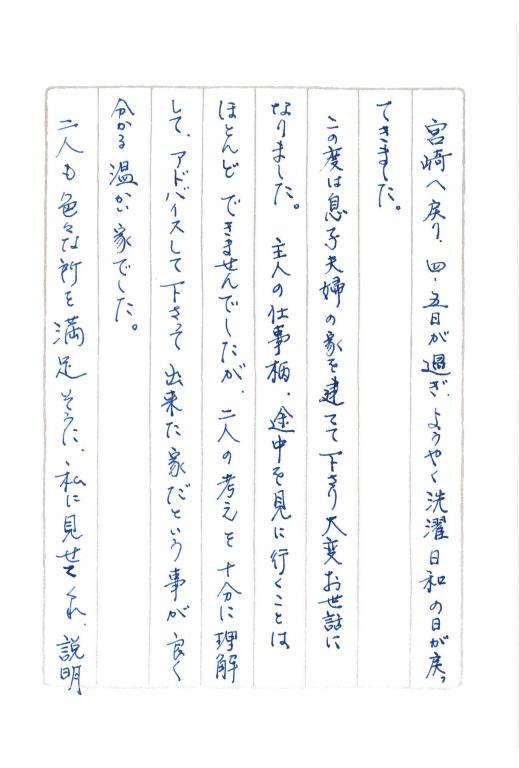 宮崎へ戻り、四・五日が過ぎ、ようやく洗濯日和の日が戻っ
てきました。
この度は息子夫婦の家を建てて下さり大変お世話に
なりました。主人の仕事柄、途中を見に行くことは
ほとんどできませんでしたが、二人の考えを十分に理解
して、アドバイスして下さって出来た家だという事が良く
分かる温かい家でした。
二人も色々な所を満足そうに、私に見せてくれ、説明